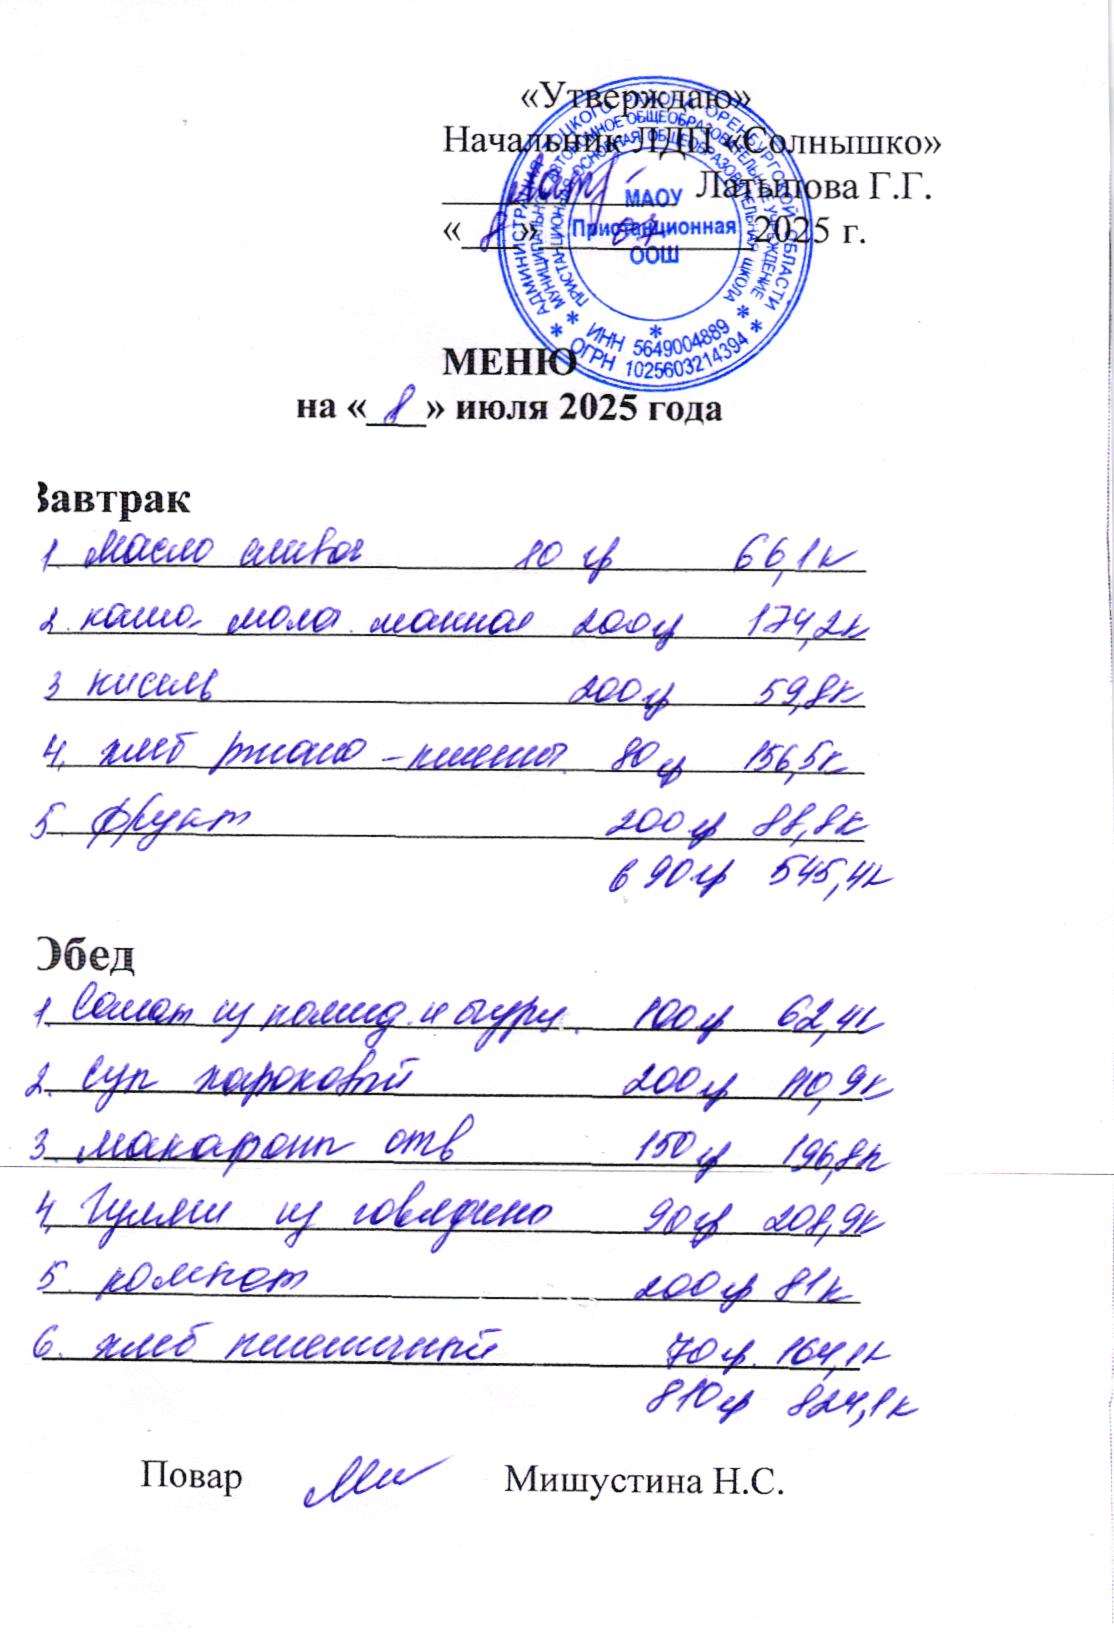 «Утверждаю»
Начальник ЛДП «Солнышко»
Латыпова Г.Г.
«8» 07 2025 г.
АДМИНИСТРАЦИЯ ТОЦКОГО РАЙОНА ОРЕНБУРГСКОЙ ОБЛАСТИ
МУНИЦИПАЛЬНОЕ АВТОНОМНОЕ ОБЩЕОБРАЗОВАТЕЛЬНОЕ УЧРЕЖДЕНИЕ
ПРИСТАНЦИОННАЯ ОСНОВНАЯ ОБЩЕОБРАЗОВАТЕЛЬНАЯ ШКОЛА
МАОУ
Пристанционная
ООШ
* ИНН 5649004889 *
* ОГРН 1025603214394 *
МЕНЮ
на «8» июля 2025 года
Завтрак
1. масло сливоч 10 гр 66,1к
2. каша молоч. манная 200гр 174,2к
3 кисель 200гр 59,8к
4. хлеб ржано-пшенич. 80гр 156,5к
5. фрукт 200гр 88,8к
690гр 545,4к
Обед
1. Салат из помид. и огурц. 100гр 62,4к
2. Суп гороховый 200гр 110,9к
3. макароны отв 150гр 196,8к
4. Гуляш из говядины 90гр 208,9к
5. компот 200гр 81к
6. хлеб пшеничный 70гр. 164,1к
810гр 824,1к
Повар Мишустина Н.С.